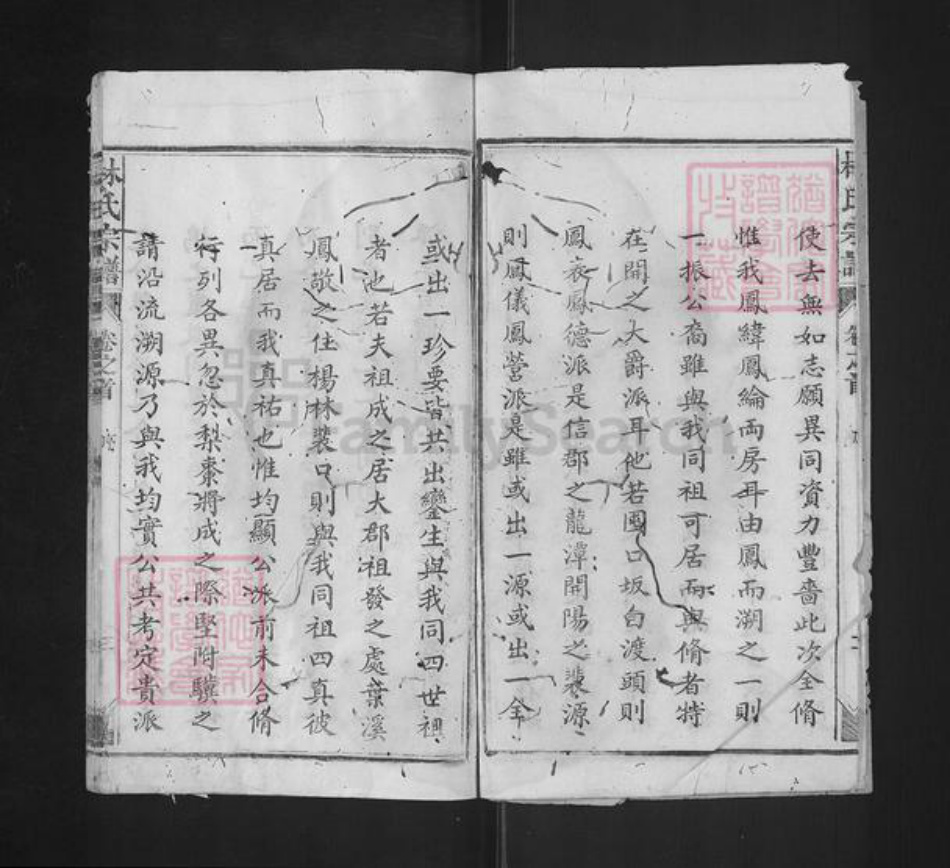 使去無如志願異同資力豐嗇此次全脩
惟我鳳緯鳳綸両房耳由鳳而溯之一則
一振公裔雖與我同祖可居而與脩者特
在開之大爵派耳他若國口坂白渡頭則
鳳衮鳳德派是信郡之龍潭開陽之裴源
則鳳儀鳳營派是雖或出一源或出一全
或出一珍要皆共出鑾生與我同四世祖
者也若夫祖成之居大郡祖發之處葉溪
鳳敬之住楊林裴口則與我同祖四真彼
真居而我真祐也惟均顯公派前未合脩
行列各異忽於梨棗將成之際堅附驥之
請沿流溯源乃與我均實公共考定貴派
林氏宗譜
卷之首
序
三
林氏宗譜
卷之首
FamilySearch